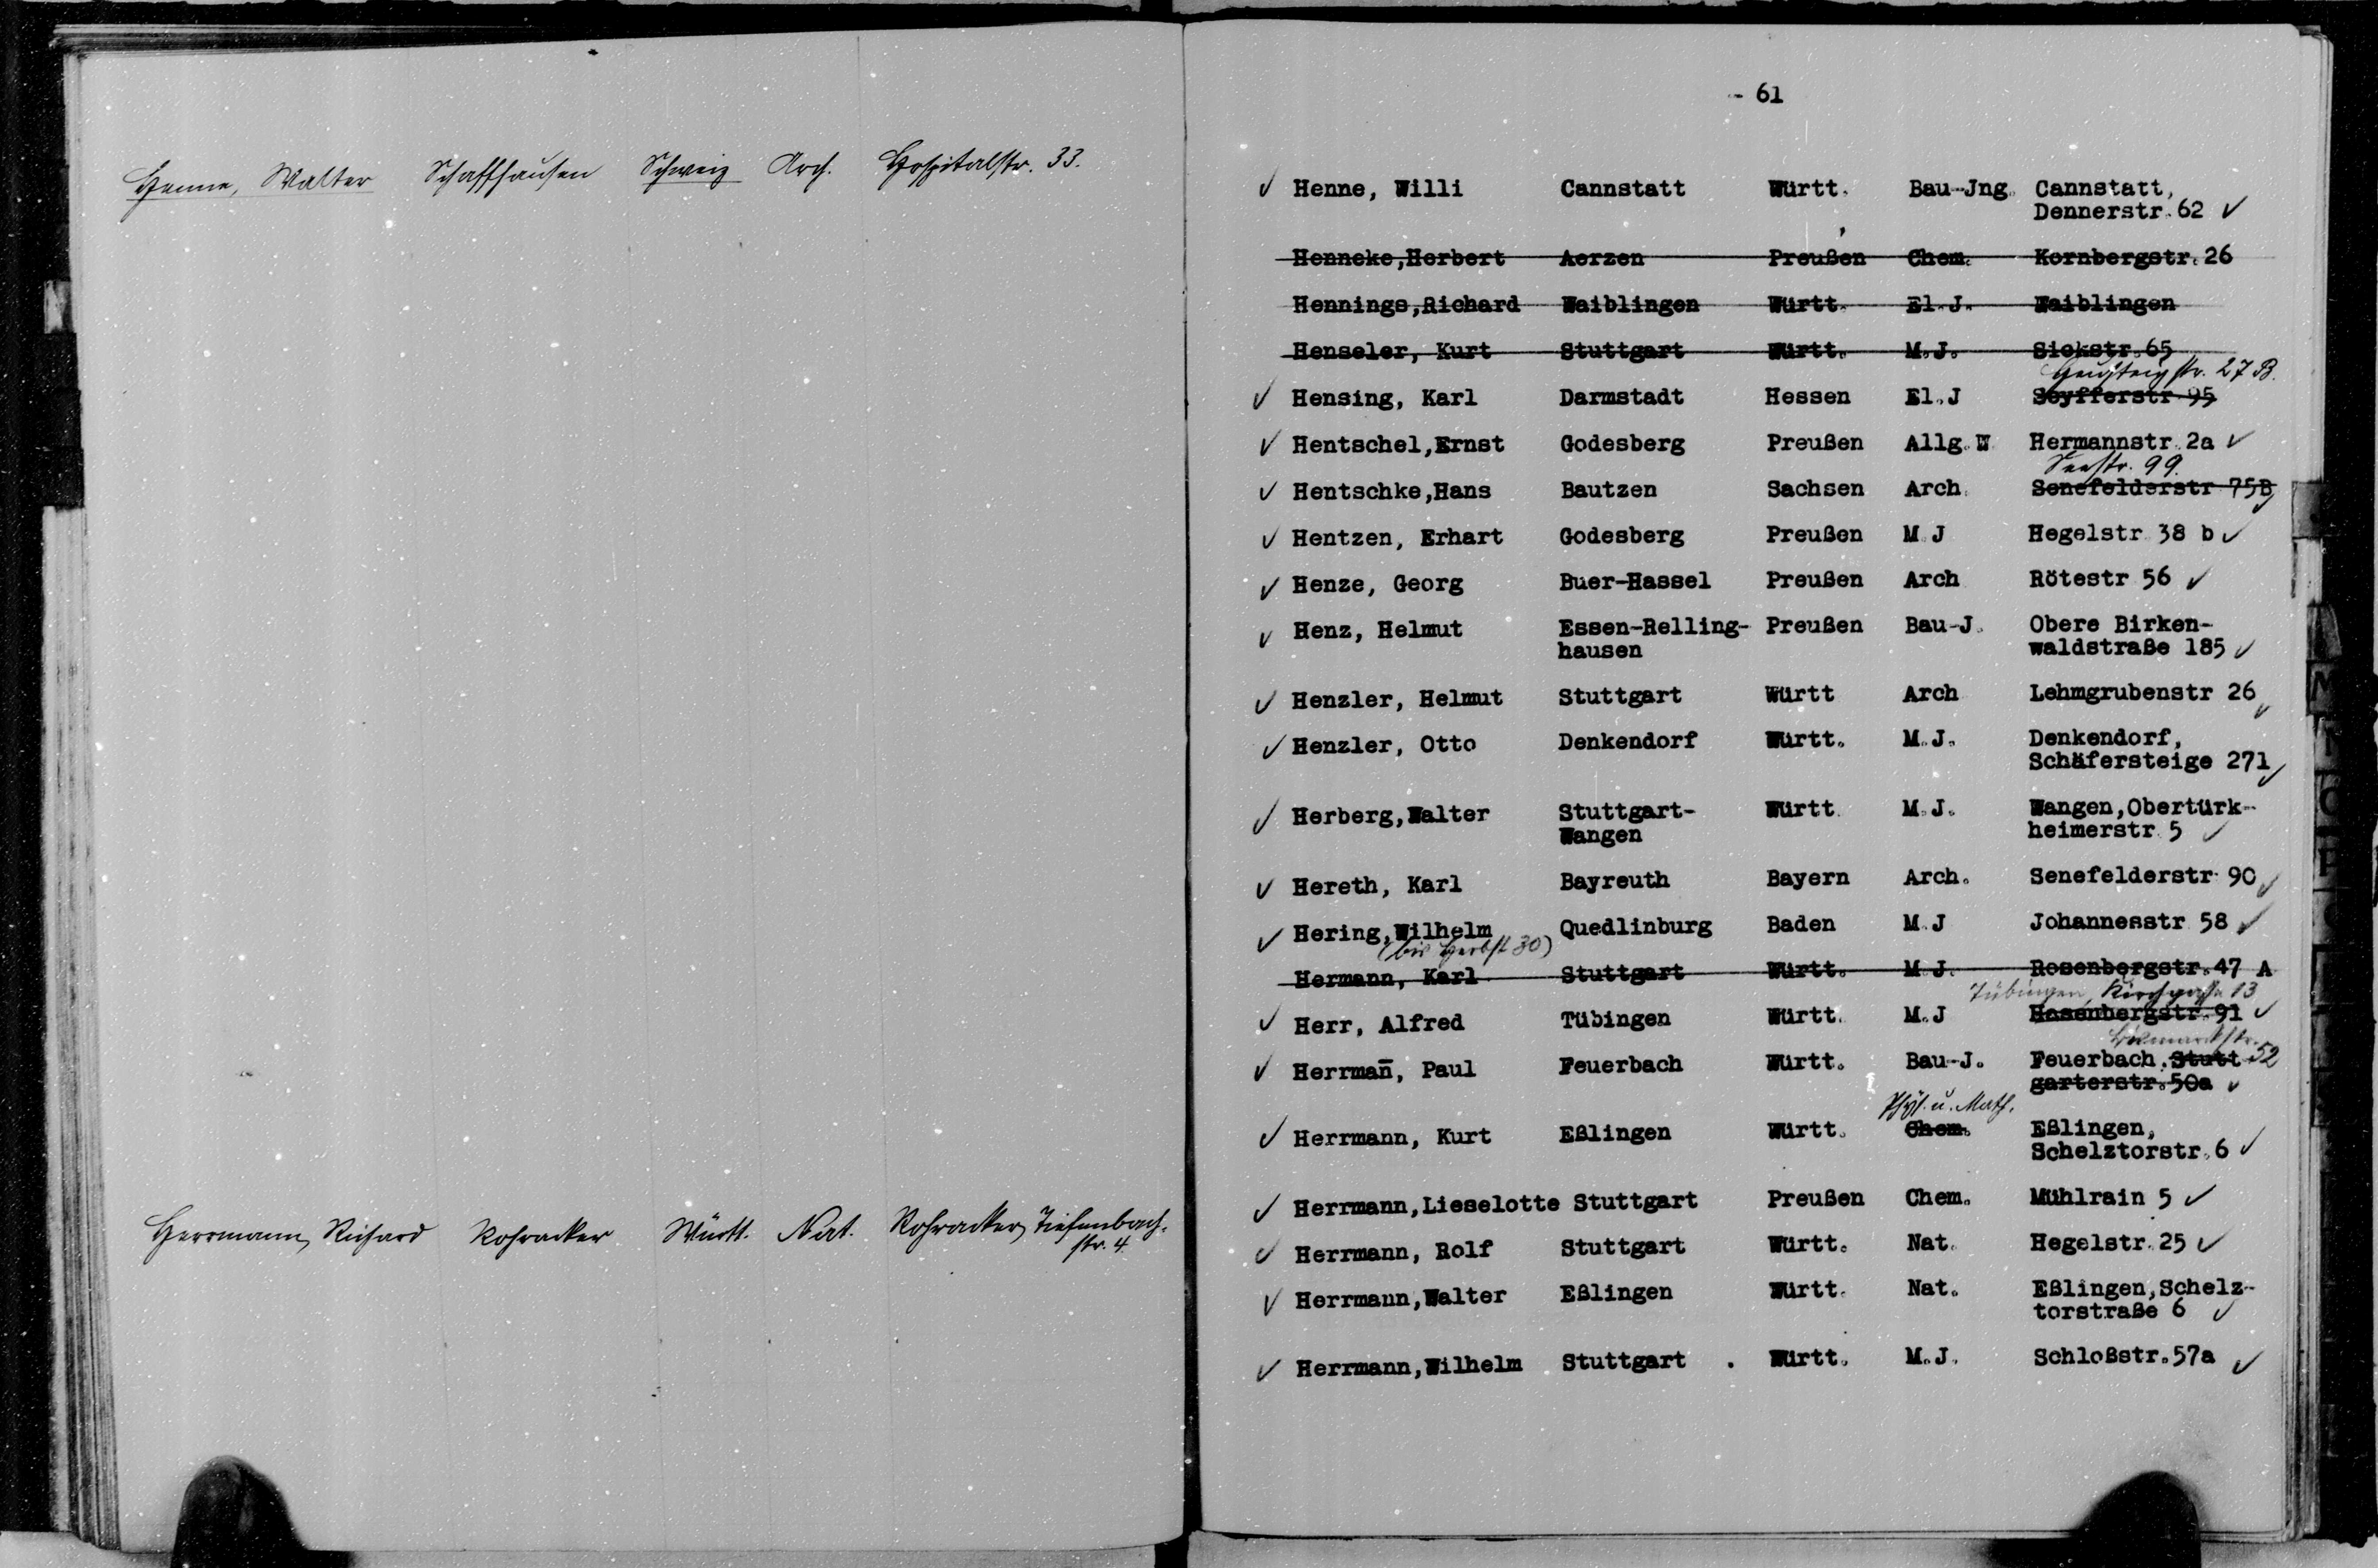 Henne, Walter Schaffhausen Schweiz Arch. Hospitalstr. 33.
Herrmann, Richard Rohracker Württ. Nat. Rohracker, Tiefenbach-
str. 4.
- 61
✓ Henne, Willi Cannstatt Württ. Bau-Jng. Cannstatt,
Dennerstr. 62 ✓
Henneke,Herbert Aerzen Preußen Chem. Kornbergstr. 26
Hennings,Richard Waiblingen Württ. El.J. Waiblingen
Henseler, Kurt Stuttgart Württ. M.J. Sickstr.65
str. 27 B.
✓ Hensing, Karl Darmstadt Hessen El.J Seyfferstr 95
✓ Hentschel,Ernst Godesberg Preußen Allg. W Hermannstr. 2a ✓
Seestr. 99.
✓ Hentschke,Hans Bautzen Sachsen Arch. Senefelderstr 75B
✓ Hentzen, Erhart Godesberg Preußen M.J Hegelstr 38 b ✓
✓ Henze, Georg Buer-Hassel Preußen Arch Rötestr 56 ✓
✓ Henz, Helmut Essen-Relling- Preußen Bau-J. Obere Birken-
hausen waldstraße 185 ✓
✓ Henzler, Helmut Stuttgart Württ Arch Lehmgrubenstr 26 ✓
✓ Henzler, Otto Denkendorf Württ. M.J. Denkendorf,
Schäfersteige 271 ✓
✓ Herberg,Walter Stuttgart- Württ. M.J. Wangen,Obertürk-
Wangen heimerstr. 5 ✓
✓ Hereth, Karl Bayreuth Bayern Arch. Senefelderstr. 90 ✓
✓ Hering,Wilhelm Quedlinburg Baden M.J Johannesstr 58 ✓
(bis Herbst 30)
Hermann, Karl Stuttgart Württ. M.J. Rosenbergstr.47 A
Tübingen, Kirchgasse 13
✓ Herr, Alfred Tübingen Württ. M.J Hasenbergstr. 91 ✓
Bismarckstr.
✓ Herrman̅, Paul Feuerbach Württ. Bau-J. Feuerbach, Stutt- 52
garterstr. 50a ✓
Phys. u. Math.
✓ Herrmann, Kurt Eßlingen Württ. Chem. Eßlingen,
Schelztorstr. 6 ✓
✓ Herrmann,Lieselotte Stuttgart Preußen Chem. Mühlrain 5 ✓
✓ Herrmann, Rolf Stuttgart Württ. Nat. Hegelstr. 25 ✓
✓ Herrmann,Walter Eßlingen Württ. Nat. Eßlingen,Schelz-
torstraße 6 ✓
✓ Herrmann,Wilhelm Stuttgart . Württ. M.J. Schloßstr.57a ✓